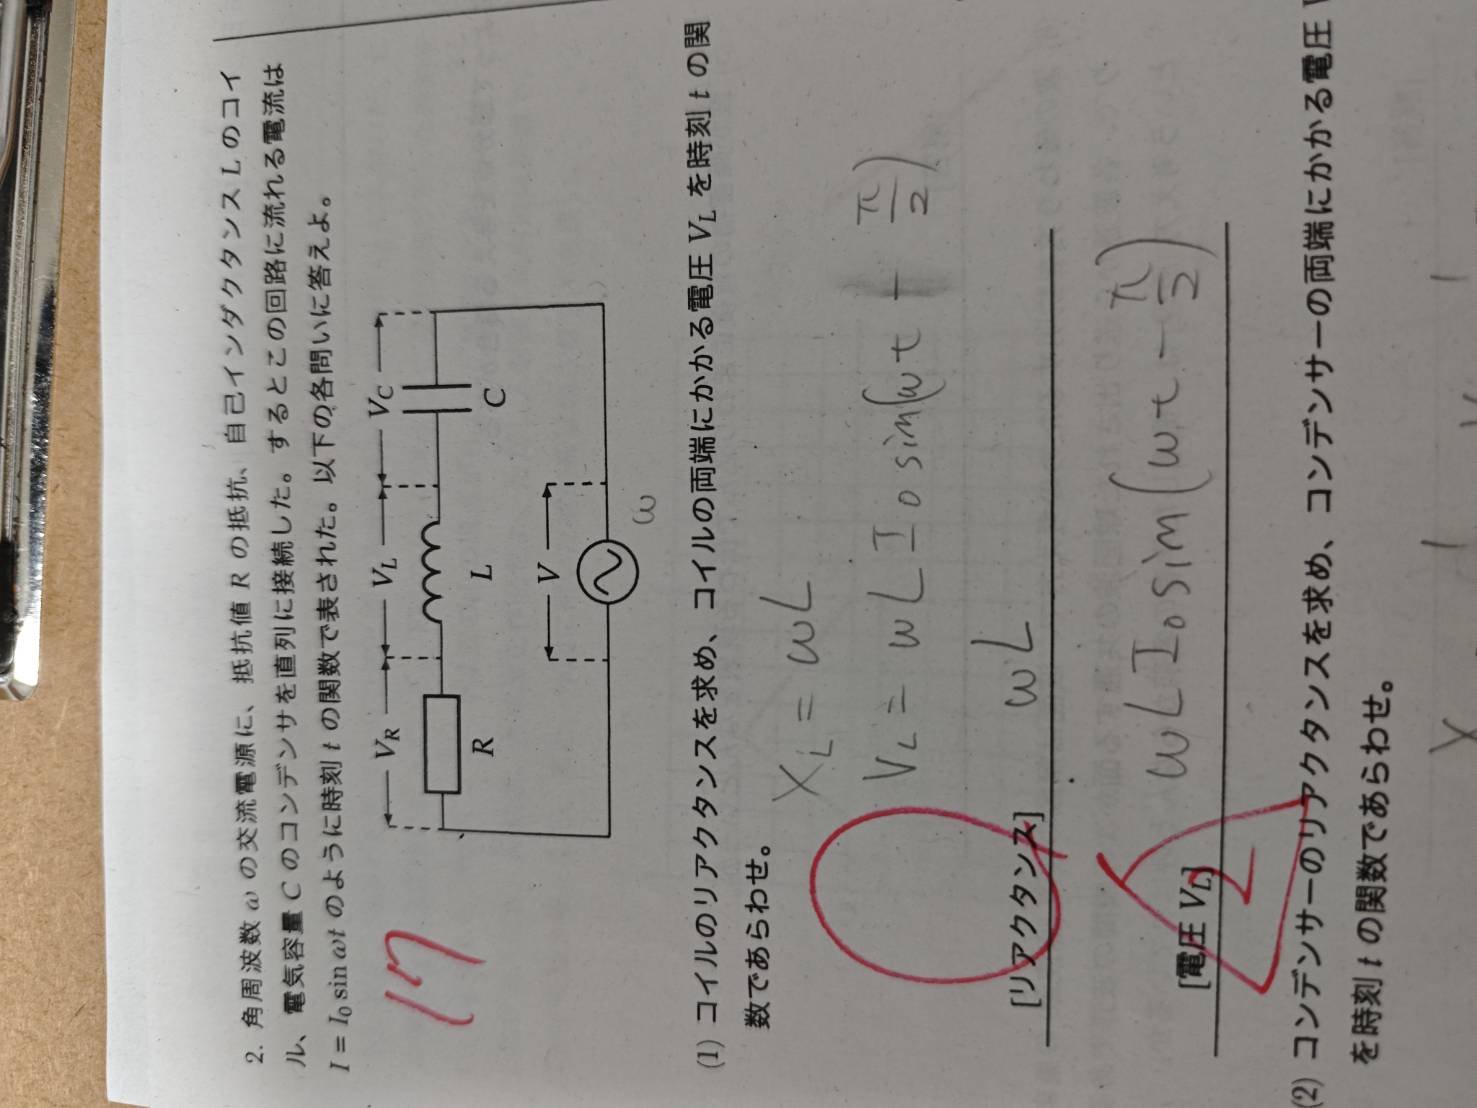 2. 角周波数 ω の交流電源に、抵抗値 R の抵抗、自己インダクタンス L のコイ
ル、電気容量 C のコンデンサを直列に接続した。するとこの回路に流れる電流は
I = I₀ sin ωt のように時刻 t の関数で表された。以下の各問いに答えよ。
17
V_R V_L V_C
R L C
V
ω
(1) コイルのリアクタンスを求め、コイルの両端にかかる電圧 V_L を時刻 t の関
数であらわせ。
X_L = ωL
V_L = ωL I₀ sin(ωt - π/2)
[リアクタンス] ωL
[電圧 V_L] ωL I₀ sin(ωt - π/2)
2
(2) コンデンサーのリアクタンスを求め、コンデンサーの両端にかかる電圧
を時刻 t の関数であらわせ。
X